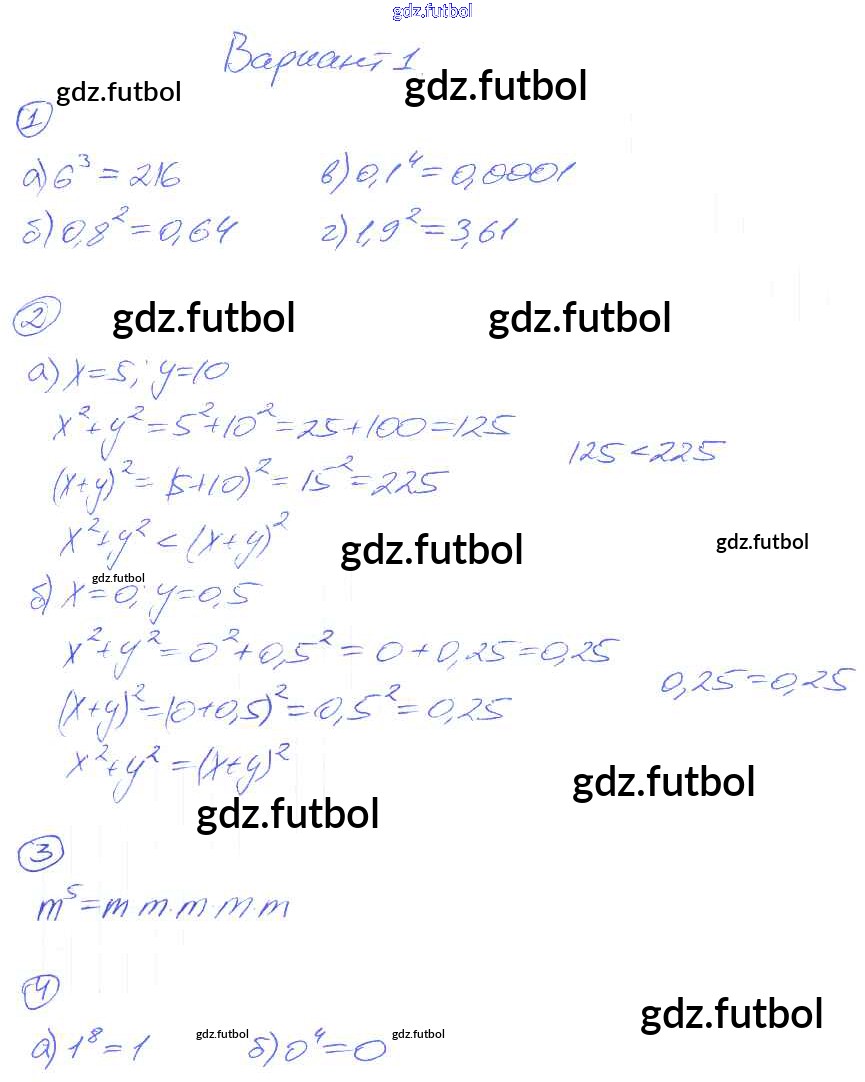 gdz.futbol
Вариант 1
gdz.futbol gdz.futbol
1
а) 6³ = 216 в) 0,1⁴ = 0,0001
б) 0,8² = 0,64 г) 1,9² = 3,61
2 gdz.futbol gdz.futbol
а) x = 5; y = 10
x² + y² = 5² + 10² = 25 + 100 = 125
125 < 225
(x+y)² = (5+10)² = 15² = 225
x² + y² < (x+y)²
gdz.futbol gdz.futbol
gdz.futbol
б) x = 0; y = 0,5
x² + y² = 0² + 0,5² = 0 + 0,25 = 0,25
0,25 = 0,25
(x+y)² = (0+0,5)² = 0,5² = 0,25
x² + y² = (x+y)²
gdz.futbol
gdz.futbol
3
m⁵ = m m · m · m · m
4
gdz.futbol
а) 1⁸ = 1 gdz.futbol б) 0⁴ = 0 gdz.futbol